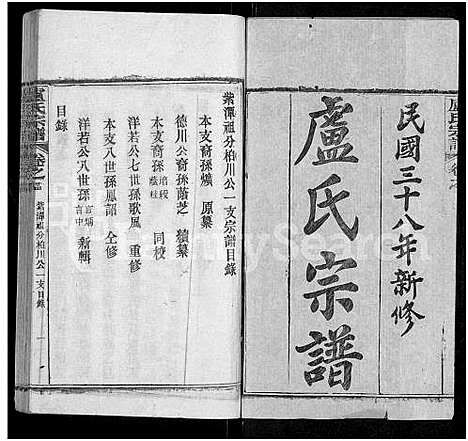 民國三十八年新修
盧氏宗譜
盧氏宗譜
紫潭祖分柏川公一支宗譜目錄
本支裔孫 原纂
德川公裔孫蔭芝 續纂
本支裔孫 同校
洋若公七世孫歌風 重修
本支八世孫鳳詔 仝修
洋若公八世孫 新輯
目錄
盧氏宗譜
紫潭祖分柏川公一支目錄
FamilySearch